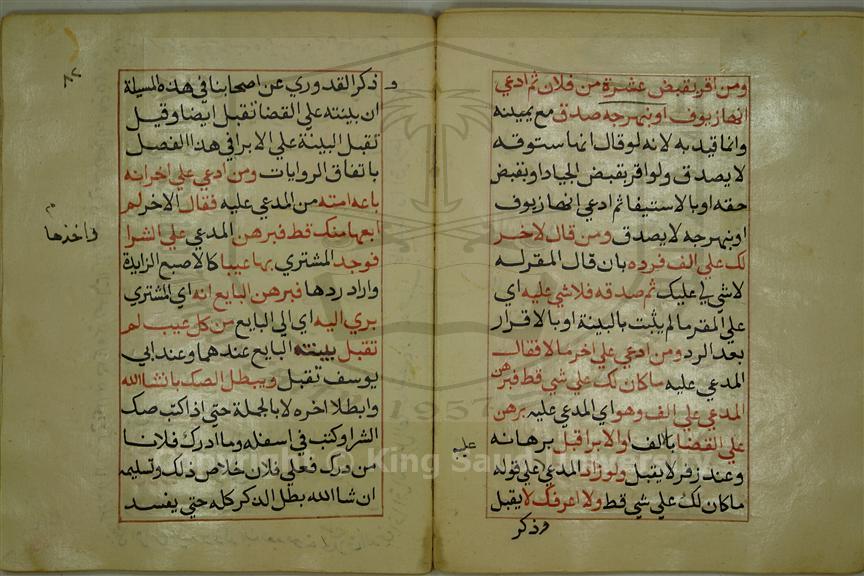 ومن اقر بقبض عشرة من فلان ثم ادعي
انها زيوف اونبهرجه صدق مع يمينه
وانما قيد به لانه لو قال انها ستوقه
لا يصدق ولو اقر بقبض الجياد او بقبض
حقه او بالاستيفا ثم ادعي انها زيوف
او نبهرجه لا يصدق ومن قال لاخر
لك علي الف فرده بان قال المقر له
لا شي لي عليك ثم صدقه فلا شي عليه اي
علي المقر ما لم يثبت بالبينة او بالاقرار
بعد الرد ومن ادعي علي اخر مالا فقال
المدعي عليه ما كان لك علي شي قط فبرهن
المدعي علي الف وهو اي المدعي عليه برهن
علي القضا بالف او الابرا قبل برهانه
وعند زفر لا يقبل ولو زاد المدعي علي قوله
عليه
ما كان لك علي شي قط ولا اعرفك لا يقبل
وذكر
٨٢
وذكر القدوري عن اصحابنا في هذه المسيلة
ان بينته علي القضا تقبل ايضا وقيل
تقبل البينة علي الابرا في هذا الفصل
باتفاق الروايات ومن ادعي علي اخر انه
باعه امته من المدعي عليه فقال الاخر لم
ابعها منك قط فبرهن المدعي علي الشرا
واخذها
فوجد المشتري بها عيبا كالاصبع الزايدة
واراد ردها فبرهن البايع انه اي المشتري
بري اليه اي الي البايع من كل عيب لم
تقبل بينته البايع عندهما وعند ابي
يوسف تقبل ويبطل الصك بانشا الله
وابطلا اخره لا بالجملة حتي اذا كتب صك
الشرا وكتب في اسفله وما ادرك فلانا
من درك فعلي فلان خلاص ذلك وتسليمه
ان شا الله بطل الذكر كله حتي يفسد
Copyright © King Saud University
1957